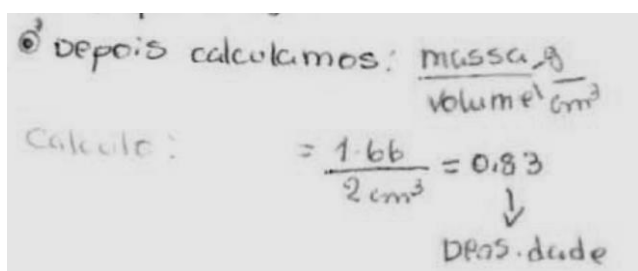 Depois calculamos: massa, g
volume' cm³
Calculo:
= 1.66 = 0.83
2 cm³
↓
Densidade